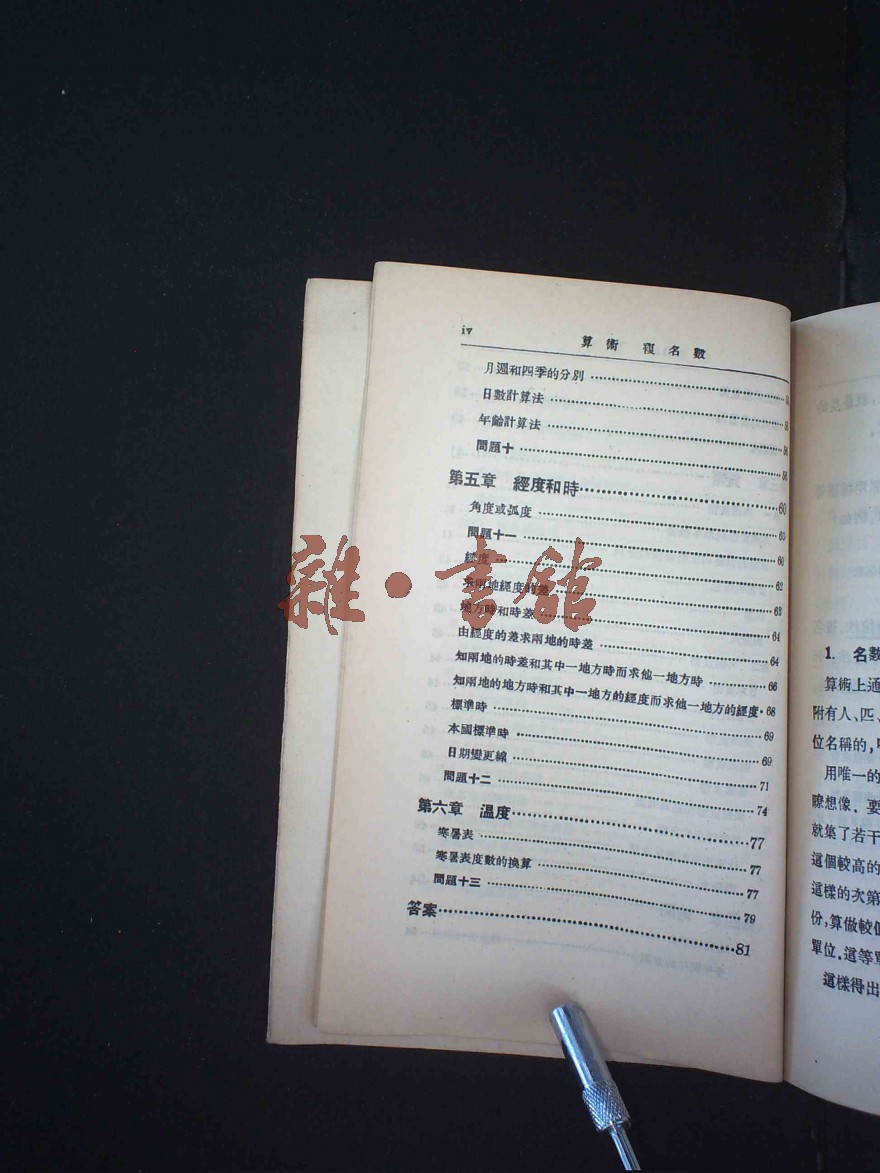 iv
算術 複名數
月週和四季的分別
日數計算法
年齡計算法
問題十
第五章 經度和時 60
角度或弧度
問題十一 60
經度 62
求兩地經度的差 63
地方時和時差 64
由經度的差求兩地的時差 64
知兩地的時差和其中一地方時而求他一地方時 66
知兩地的地方時和其中一地方的經度而求他一地方的經度 68
標準時 69
本國標準時 69
日期變更線 71
問題十二 74
第六章 溫度 77
寒暑表 77
寒暑表度數的換算 77
問題十三 79
答案 81
雜·書館
1. 名數
算術上通
附有人、匹、
位名稱的,
用唯一的
瞭想像. 要
就集了若干
這個較高的
這樣的次第
份,算做較低
單位.這等單
這樣得出